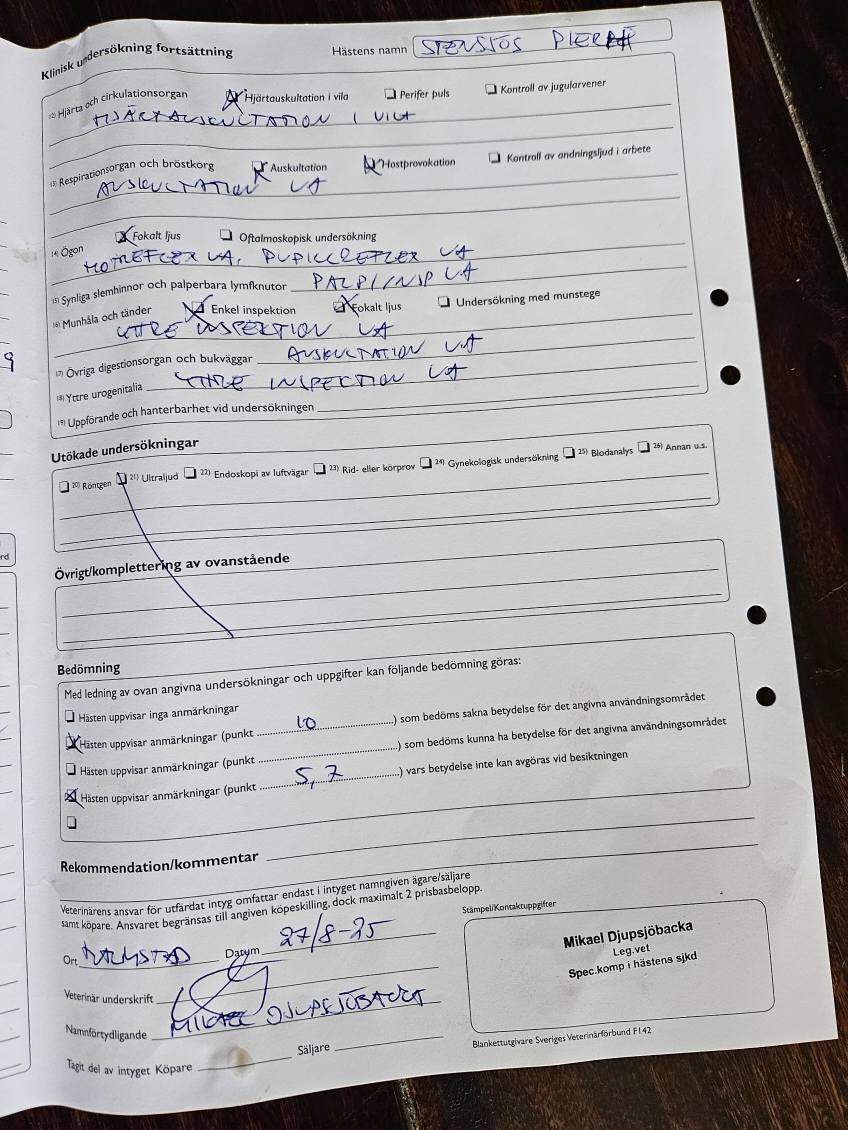 Klinisk undersökning fortsättning Hästens namn STENSJÖS PIERRE
12) Hjärta och cirkulationsorgan Hjärtauskultation i vila Perifer puls Kontroll av jugularvener
HJÄRTAUSKULTATION I VILA
13) Respirationsorgan och bröstkorg Auskultation Hostprovokation Kontroll av andningsljud i arbete
AUSKULTATION UA
14) Ögon Fokalt ljus Oftalmoskopisk undersökning
HOTREFLEX UA, PUPILLREFLEX UA
15) Synliga slemhinnor och palperbara lymfknutor PALP/INSP UA
16) Munhåla och tänder Enkel inspektion Fokalt ljus Undersökning med munstege
YTTRE INSPEKTION UA
17) Övriga digestionsorgan och bukväggar AUSKULTATION UA
18) Yttre urogenitalia YTTRE INSPECTION UA
19) Uppförande och hanterbarhet vid undersökningen
Utökade undersökningar
20) Röntgen 21) Ultraljud 22) Endoskopi av luftvägar 23) Rid- eller körprov 24) Gynekologisk undersökning 25) Blodanalys 26) Annan u.s.
Övrigt/komplettering av ovanstående
Bedömning
Med ledning av ovan angivna undersökningar och uppgifter kan följande bedömning göras:
Hästen uppvisar inga anmärkningar
Hästen uppvisar anmärkningar (punkt 10) som bedöms sakna betydelse för det angivna användningsområdet
Hästen uppvisar anmärkningar (punkt ) som bedöms kunna ha betydelse för det angivna användningsområdet
Hästen uppvisar anmärkningar (punkt 5, 7) vars betydelse inte kan avgöras vid besiktningen
Rekommendation/kommentar
Veterinärens ansvar för utfärdat intyg omfattar endast i intyget namngiven ägare/säljare
samt köpare. Ansvaret begränsas till angiven köpeskilling, dock maximalt 2 prisbasbelopp.
Stämpel/Kontaktuppgifter
Ort HALMSTAD Datum 27/8-25
Mikael Djupsjöbacka
Leg.vet
Spec.komp i hästens sjkd
Veterinär underskrift
Namnförtydligande MIKAEL DJUPSJÖBACKA
Tagit del av intyget Köpare Säljare
Blankettutgivare Sveriges Veterinärförbund F142